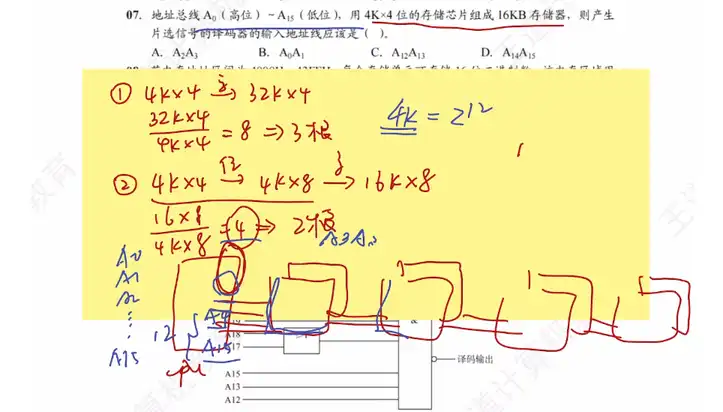 07. 地址总线A₀（高位）~A₁₅（低位），用4K×4位的存储芯片组成16KB存储器，则产生
片选信号的译码器的输入地址线应该是（ ）。
A. A₂A₃ B. A₀A₁ C. A₁₂A₁₃ D. A₁₄A₁₅
① 4K×4 字→ 32K×4
32K×4
4K×4
= 8 ⇒ 3根
4K = 2¹²
② 4K×4 位→ 4K×8 字→ 16K×8
16×8
4K×8
= 4 ⇒ 2根
A0
A1
A2
⋮
A15
12
A4
A15
&
A17
A15
A13
A12
译码输出